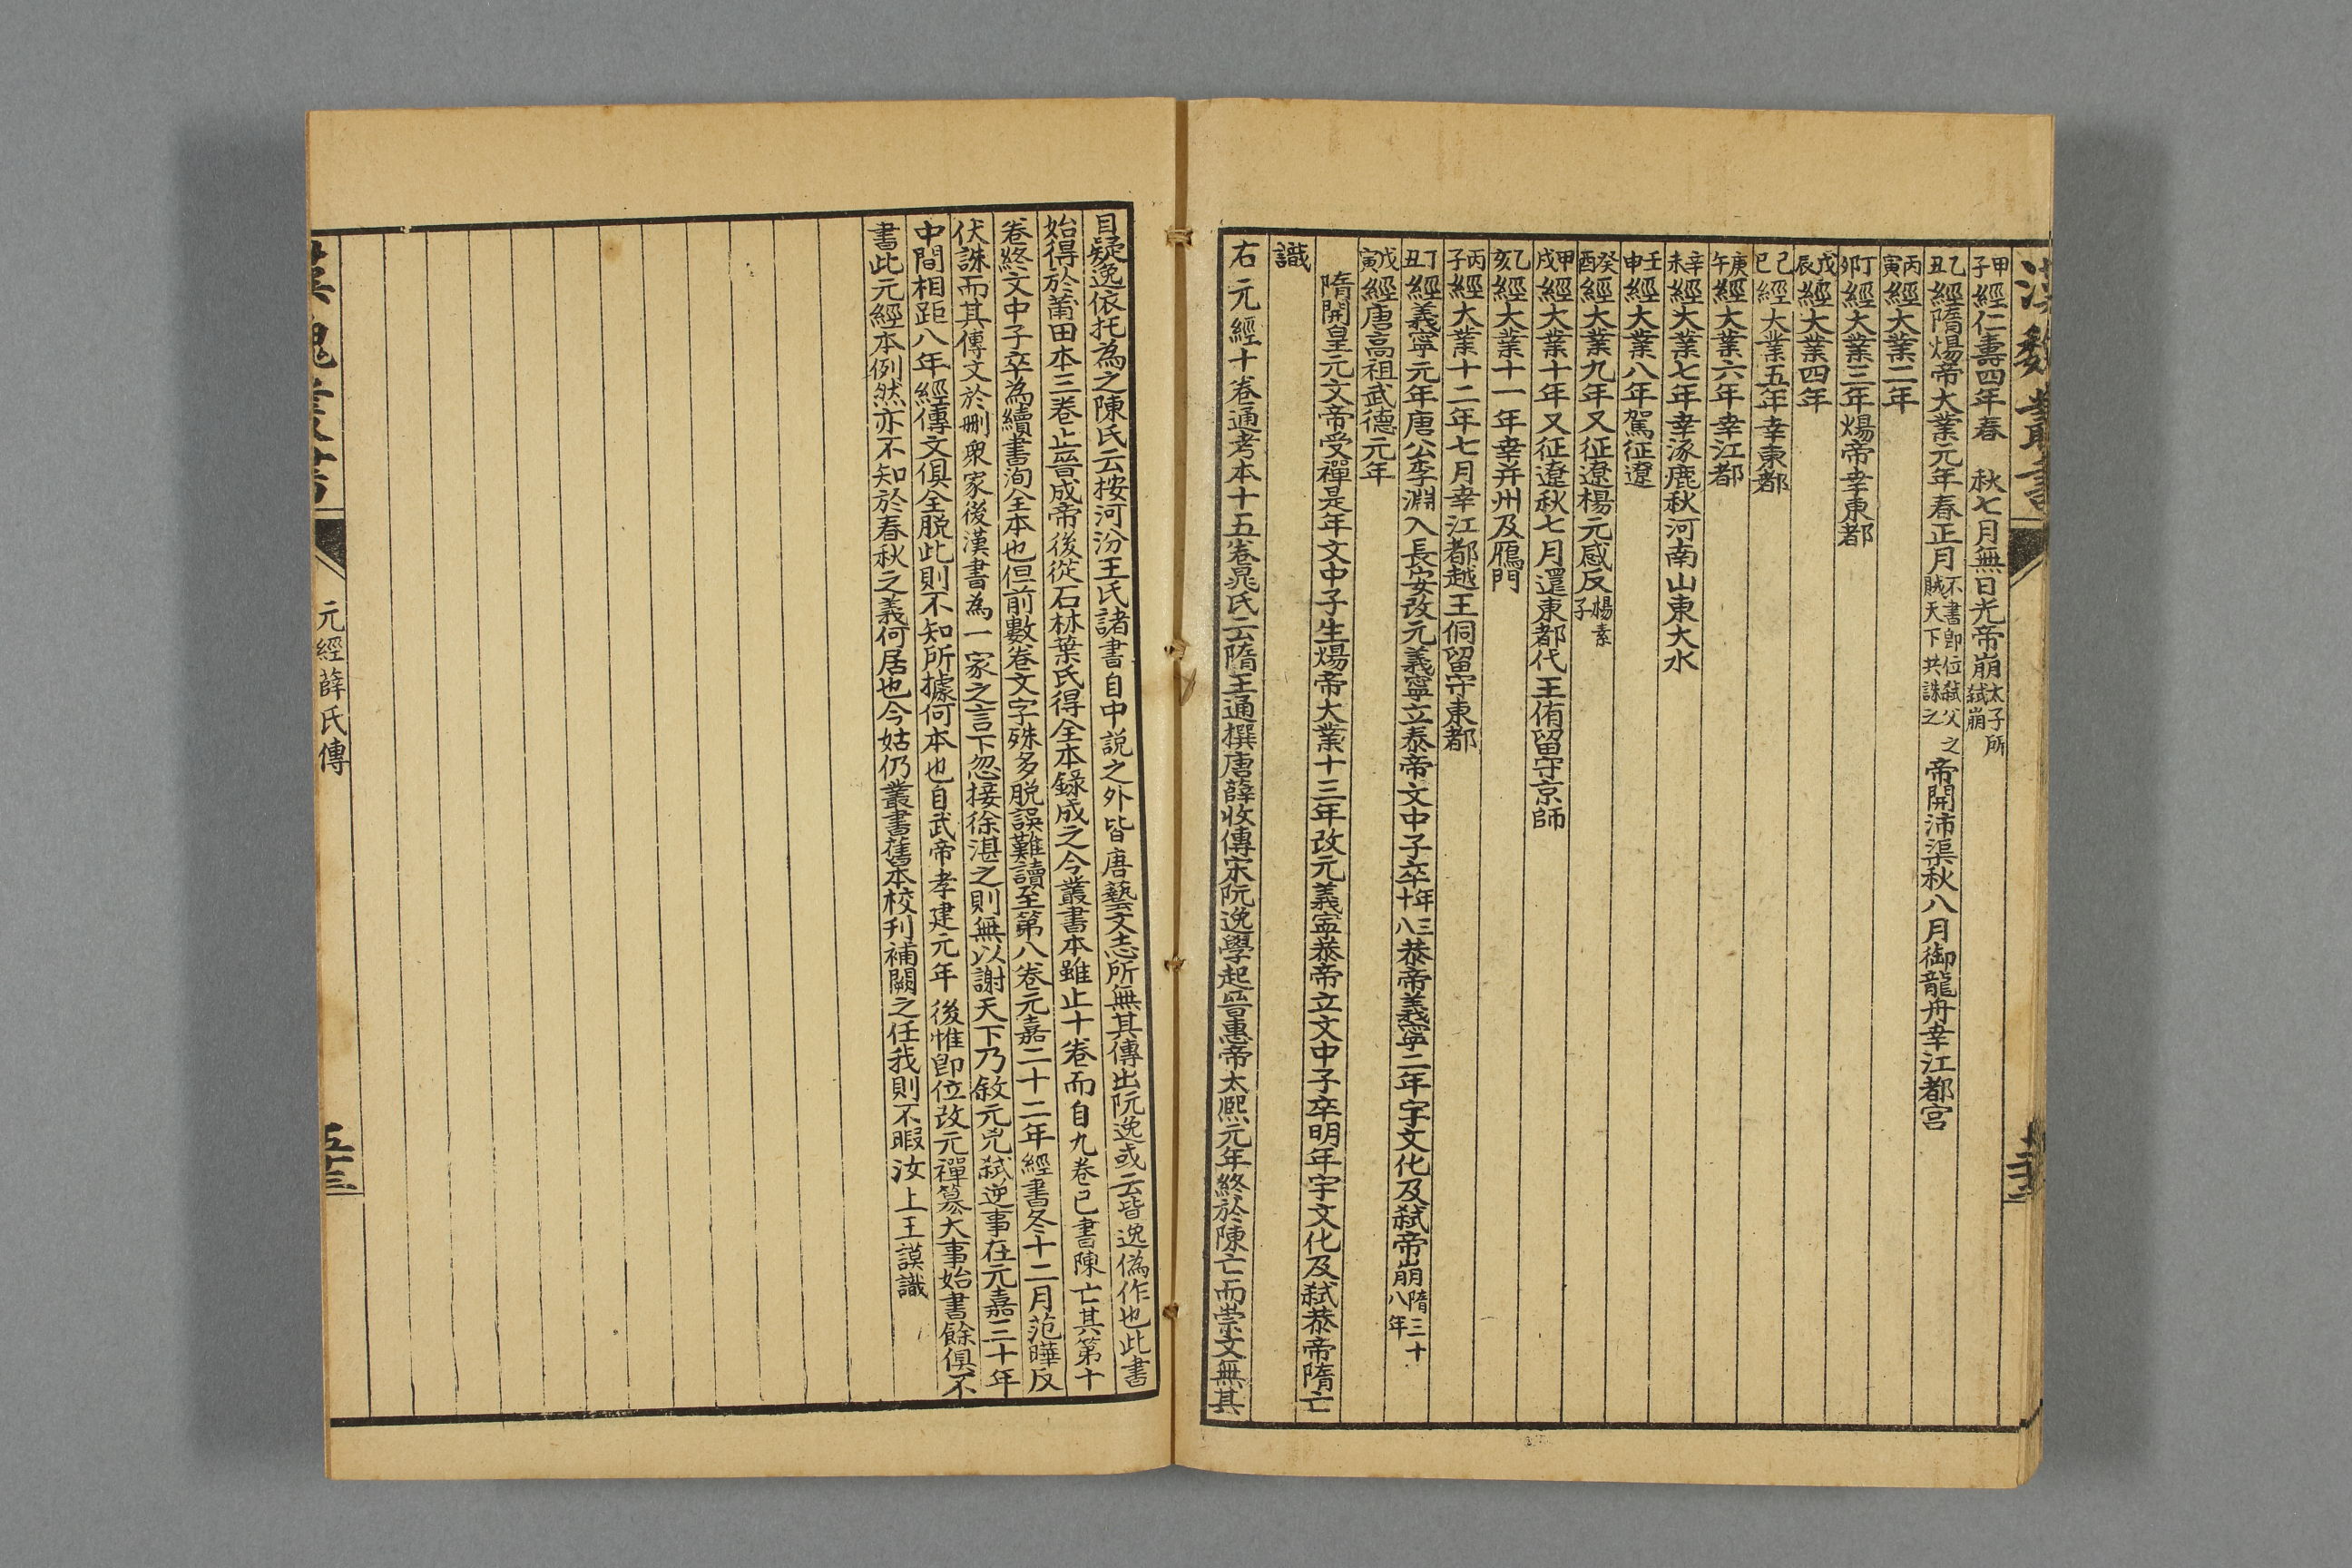 漢魏叢書
甲子經仁壽四年春 秋七月無日光帝崩太子所弑崩
乙丑經隋煬帝大業元年春正月不書卽位弑父之賊天下共誅之帝開沛渠秋八月御龍舟幸江都宮
丙寅經大業二年
丁卯經大業三年煬帝幸東都
戊辰經大業四年
己巳經大業五年幸東都
庚午經大業六年幸江都
辛未經大業七年幸涿鹿秋河南山東大水
壬申經大業八年駕征遼
癸酉經大業九年又征遼楊元感反楊素子
甲戌經大業十年又征遼秋七月還東都代王侑留守京師
乙亥經大業十一年幸并州及鴈門
丙子經大業十二年七月幸江都越王侗留守東都
丁丑經義寧元年唐公李淵入長安改元義寧立泰帝文中子卒年三十八恭帝義寧二年宇文化及弑帝崩隋三十八年
戊寅經唐高祖武德元年
隋開皇元文帝受禪是年文中子生煬帝大業十三年改元義寧恭帝立文中子卒明年宇文化及弑恭帝隋亡
識
右元經十卷通考本十五卷晁氏云隋王通撰唐薛收傳宋阮逸學起晉惠帝太熙元年終於陳亡而崇文無其
目疑逸依托為之陳氏云按河汾王氏諸書自中說之外皆唐藝文志所無其傳出阮逸或云皆逸偽作也此書
始得於莆田本三卷止晉成帝後從石林葉氏得全本錄成之今叢書本雖止十卷而自九卷已書陳亡其第十
卷終文中子卒為續書洵全本也但前數卷文字殊多脫誤難讀至第八卷元嘉二十二年經書冬十二月范曄反
伏誅而其傳文於刪衆家後漢書為一家之言下忽接徐湛之則無以謝天下乃敘元兇弑逆事在元嘉三十年
中間相距八年經傳文俱全脫此則不知所據何本也自武帝孝建元年後惟卽位改元禪篡大事始書餘俱不
書此元經本例然亦不知於春秋之義何居也今姑仍叢書舊本校刊補闕之任我則不暇汝上王謨識
元經薛氏傳
五十三